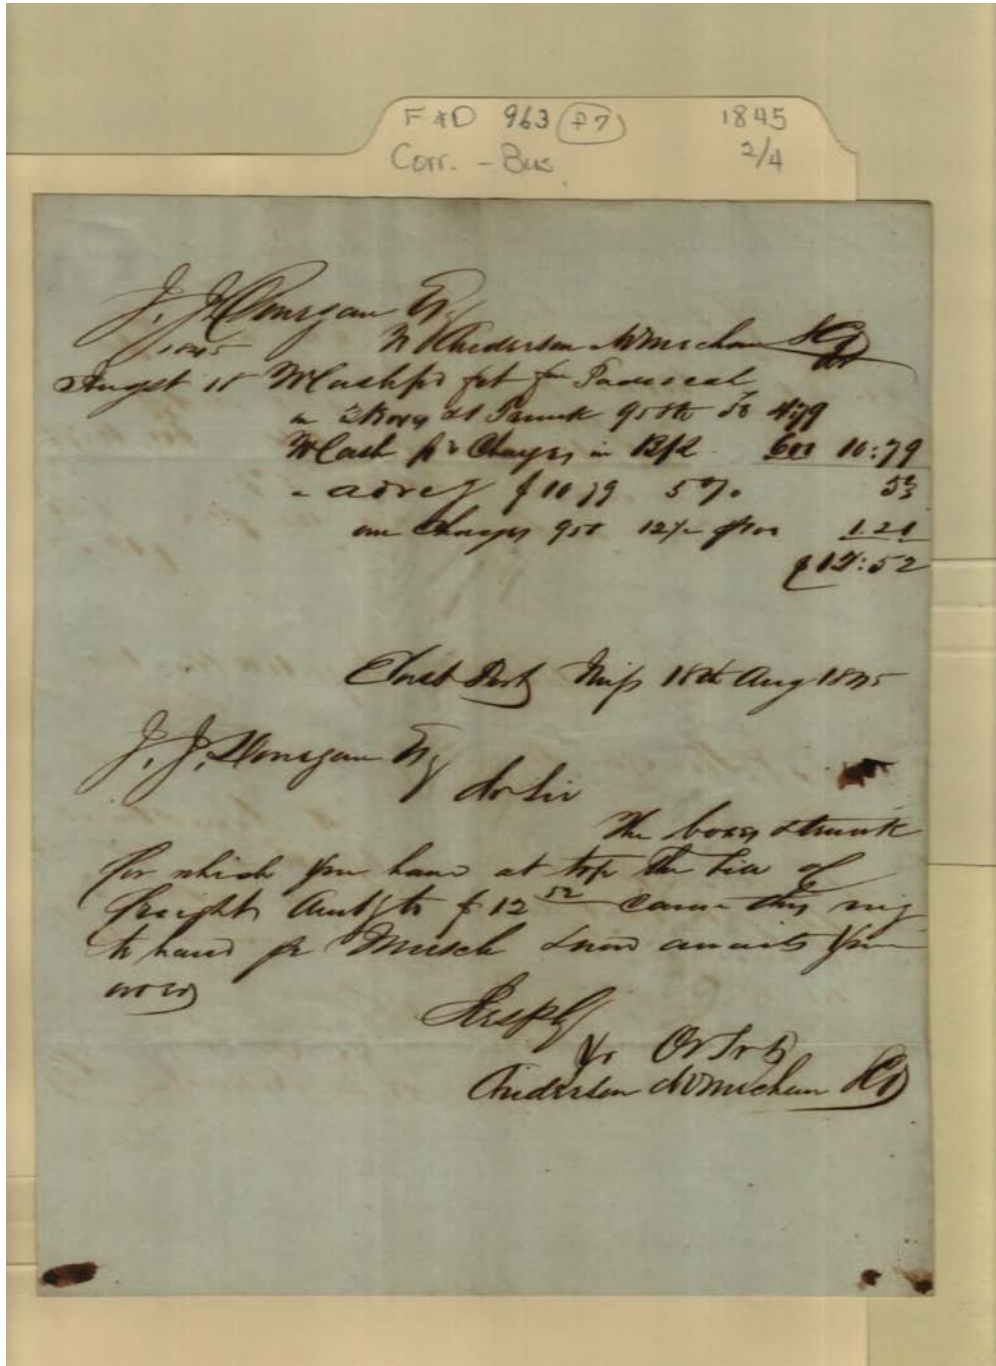 F & D 963 (f7) 1845
Corr. - Bus. 2/4
J. J. Donegan Esq
1845 To Anderson McMechan & Co
Dr
August 18 To Cash pd frt fm
in 2 Boxes & 1 Trunk 958 lb 50 4.79
To Cash pd Charges in Bill 6.00 10:79
" advcg $10.79 5% 53
our Charges 958 12½ 1.20
$12:52
East Port Miss 18th Aug 1845
J. J. Donegan Esq
Dr Sir
The boxes & trunk
for which you have at top the bill of
freight Amtg to $12 52 came this mg
to hand pr & now awaits your
order
Respfy
Yr Ob Svts
Anderson McMechan & Co